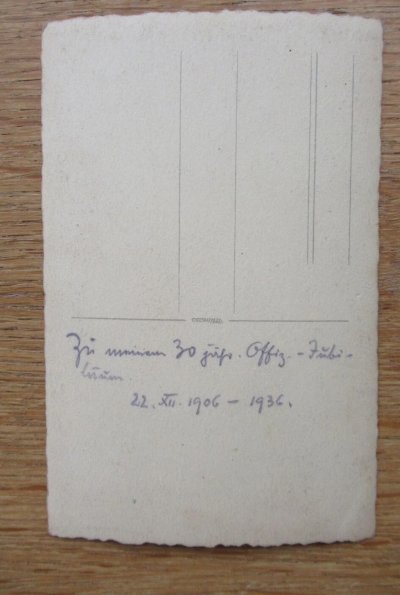 Zu meinem 30 jähr. Offiz.-Jubi-
läum.
22. XII. 1906 – 1936.